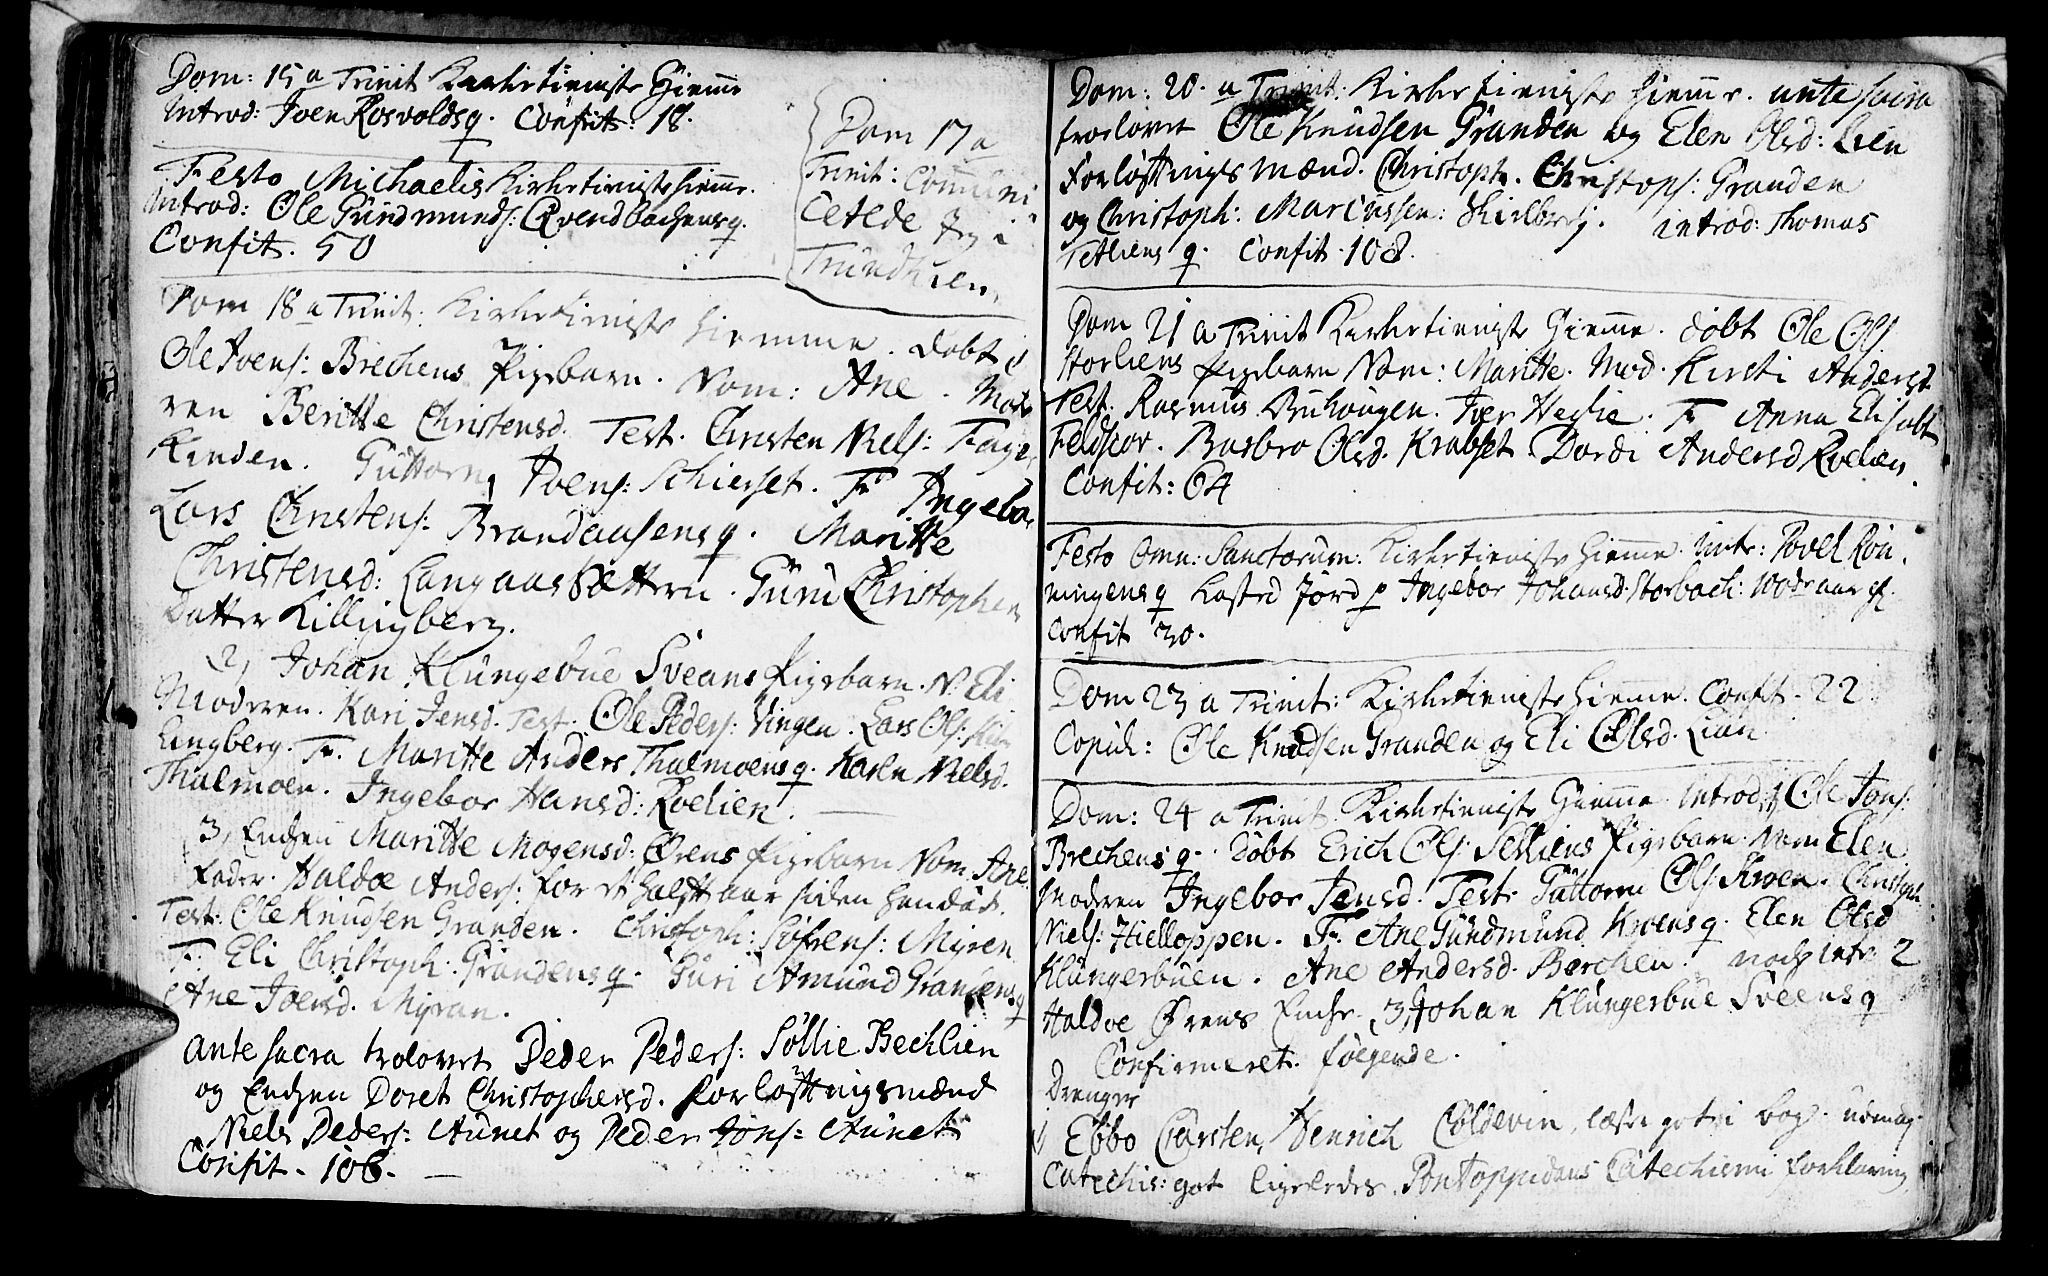 Dom: 15 a Trinit Kirketieniste Hiemme
Introd: Joen Rosvoldsq. Confit: 18.
Festo Michaelis Kirketieniste hiemme.
Introd: Ole Gundmunds: Qvendbachensq.
Confit. 50
Dom 17 a
Trinit: Communi
Cerede jeg i
Trundhiem
Dom 18 a Trinit: Kirketieniste hiemme. døbt 1)
Ole Joens: Brechens Pigebarn. Nom: Ane. Mode
ren Beritte Christensd. Test. Christen Niels: Fager
Kinden. Guttorm Joens: Schierset. Fr Ingebor
Lars Christens: Brandaasensq. Maritte
Christensd: Langaas Sættern. Guru Christopher
Datter Killingberg.
2) Johan Klungebue Sveans Pigebarn. N. Eli
Moderen. Kari Jensd. Test. Ole Peders: Vingen. Lars Ols: Kil
lingberg. Fr. Maritte Anders Thalmoensq. Karen Nielsd.
Thalmoen. Ingebor Hansd: Roelien.
3, Enchen Maritte Mogensd: Ørens Pigebarn Nom. Ane
Fader. Haldoe Anders: for et halft aar siden hendød.
Test: Ole Knudsen Granden. Christoph: Søfrens: Myren
Fr. Eli Christoph: Grandensq. Guri Amund Grandensq
Ane Joensd. Myran.
Ante sacra trolovet Peder Peders: Søllie Bechlien
og Enchen Doret Christophersd. Forløftningsmænd
Niels Peders: Aunet og Peder Jons: Aunet
Confit. 106.
Dom: 20. a Trinit: Kirketieniste hiemme. ante sacra
troelovet Ole Knudsen Granden og Elen Olsd: Lien
Forløftnings mænd. Christoph. Christops: Granden
og Christoph: Marcussen: Skielberg. introd: Thomas
Tetliens q. Confit. 108.
Dom 21 a Trinit Kirketieniste Hiemme. døbt Ole Ols
Storliens Pigebarn Nom: Maritte. Mod. Kirsti Andersd.
Test. Rasmus Bruhaugen. Iver Heglie. Fr Anna Elisabt
Feldscor. Barbro Olsd. Krabset. Dordi Andersd Roelien.
Confit: 64
Festo Omn: Sanctorum: Kirketieniste hiemme. Intr: Povel Røn
ningensq kasted Jord p Ingebor Johansd. Storbach: 100de aar gl.
Confit 30.
Dom 23 a Trinit: Kirketieniste hiemme. Confit. 22
Copul: Ole Knudsen Granden og Eli Olsd. Lian
Dom: 24 a Trinit. Kirketieniste Hiemme. Introd: 1) Ole Jons:
Brechens q. Døbt Erich Ols: Setliens Pigebarn. Nom Elen
Moderen Ingebor Jensd. Test. Guttorm Ols: Kroen. Christoph
Niels: Hielloppen. Fr. Ane Gundmund Kroensq. Elen Olsd
Klungerbuen. Ane Andersd. Berchen. noch intr 2
Haldoe Ørens Enche. 3, Johan Klungerbue Sveensq
Confirmeret følgende.
Drenger
1) Ebbo Carsten Henrich Coldevin, læser got i bog. udenad
Catechis: got ligeledes Pontoppidans Catechismi forklaring